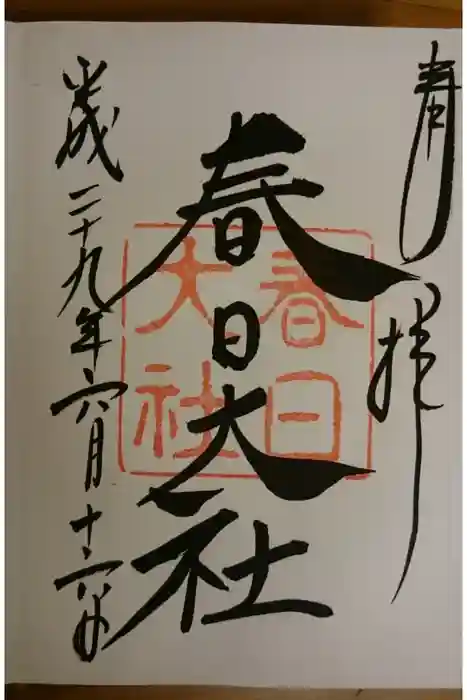 奉拝
春日大社
春日
大社
平成二十九年六月十六日